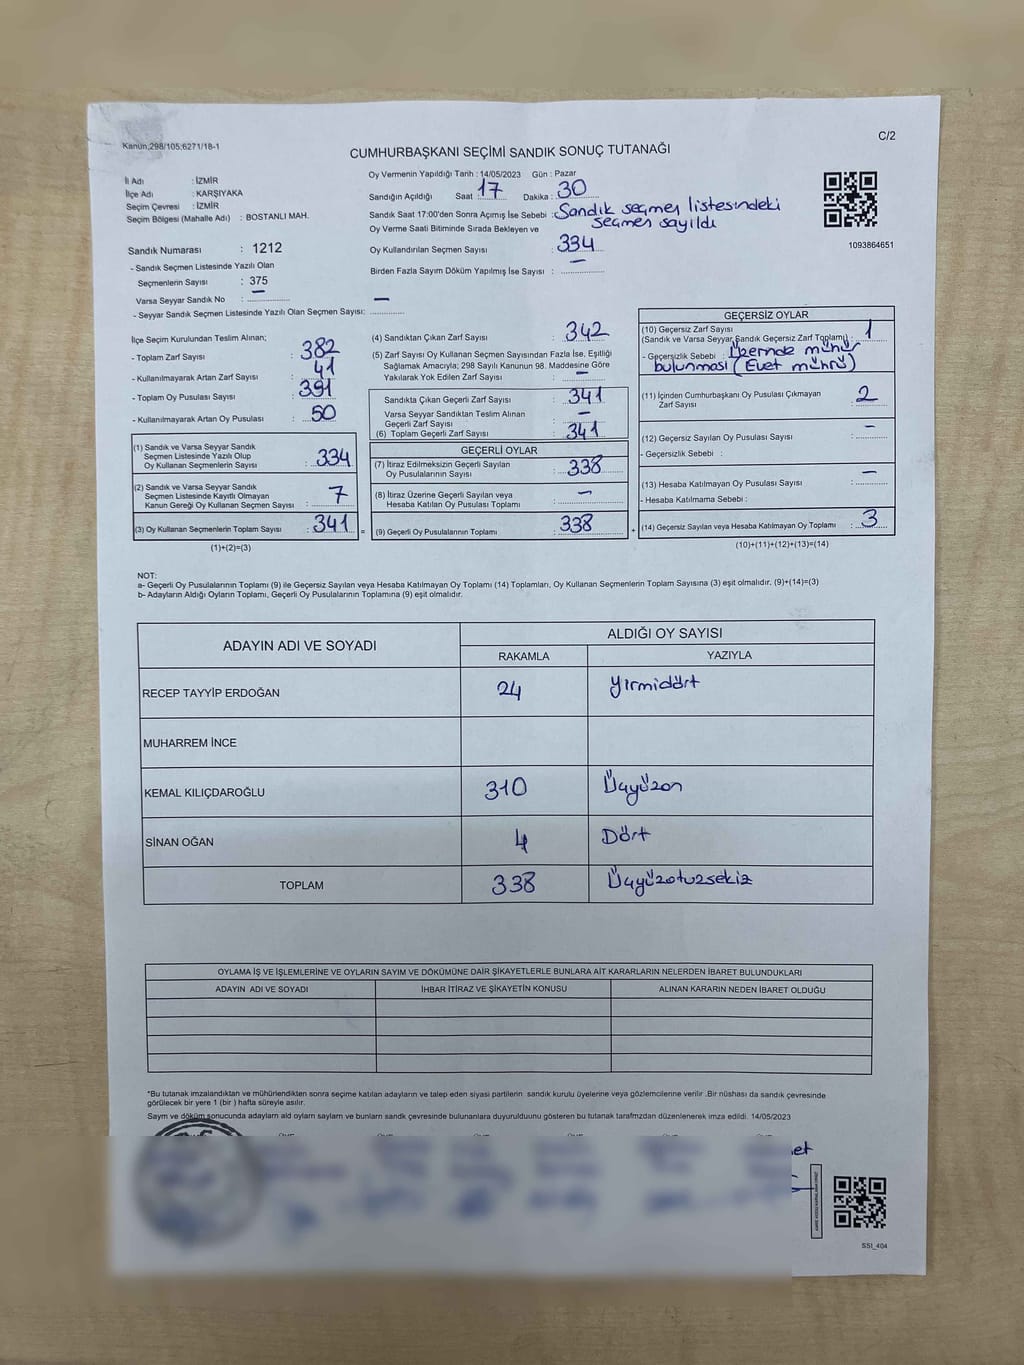 Kanun;298/105;6271/18-1
C/2
CUMHURBAŞKANI SEÇİMİ SANDIK SONUÇ TUTANAĞI
İl Adı : İZMİR
İlçe Adı : KARŞIYAKA
Seçim Çevresi : İZMİR
Seçim Bölgesi (Mahalle Adı) : BOSTANLI MAH.
Sandık Numarası : 1212
- Sandık Seçmen Listesinde Yazılı Olan
Seçmenlerin Sayısı : 375
Varsa Seyyar Sandık No : —
- Seyyar Sandık Seçmen Listesinde Yazılı Olan Seçmen Sayısı: —
Oy Vermenin Yapıldığı Tarih : 14/05/2023 Gün : Pazar
Sandığın Açıldığı Saat : 17 Dakika : 30
Sandık Saat 17:00'den Sonra Açımış İse Sebebi : Sandık seçmen listesindeki
seçmen sayıldı
Oy Verme Saati Bitiminde Sırada Bekleyen ve
Oy Kullandırılan Seçmen Sayısı : 334
Birden Fazla Sayım Döküm Yapılmış İse Sayısı : —
1093864651
İlçe Seçim Kurulundan Teslim Alınan;
- Toplam Zarf Sayısı : 382
- Kullanılmayarak Artan Zarf Sayısı : 41
- Toplam Oy Pusulası Sayısı : 391
- Kullanılmayarak Artan Oy Pusulası : 50
(1) Sandık ve Varsa Seyyar Sandık
Seçmen Listesinde Yazılı Olup
Oy Kullanan Seçmenlerin Sayısı : 334
(2) Sandık ve Varsa Seyyar Sandık
Seçmen Listesinde Kayıtlı Olmayan
Kanun Gereği Oy Kullanan Seçmen Sayısı : 7
(3) Oy Kullanan Seçmenlerin Toplam Sayısı : 341 =
(1)+(2)=(3)
(4) Sandıktan Çıkan Zarf Sayısı : 342
(5) Zarf Sayısı Oy Kullanan Seçmen Sayısından Fazla İse, Eşitliği
Sağlamak Amacıyla; 298 Sayılı Kanunun 98. Maddesine Göre
Yakılarak Yok Edilen Zarf Sayısı : —
Sandıkta Çıkan Geçerli Zarf Sayısı : 341
Varsa Seyyar Sandıktan Teslim Alınan
Geçerli Zarf Sayısı : —
(6) Toplam Geçerli Zarf Sayısı : 341
GEÇERLİ OYLAR
(7) İtiraz Edilmeksizin Geçerli Sayılan
Oy Pusulalarının Sayısı : 338
(8) İtiraz Üzerine Geçerli Sayılan veya
Hesaba Katılan Oy Pusulası Toplamı : —
(9) Geçerli Oy Pusulalarının Toplamı : 338 +
GEÇERSİZ OYLAR
(10) Geçersiz Zarf Sayısı
(Sandık ve Varsa Seyyar Sandık Geçersiz Zarf Toplamı) : 1
- Geçersizlik Sebebi : Üzerinde mühür
bulunması (Evet mührü)
(11) İçinden Cumhurbaşkanı Oy Pusulası Çıkmayan
Zarf Sayısı : 2
(12) Geçersiz Sayılan Oy Pusulası Sayısı : —
- Geçersizlik Sebebi :
(13) Hesaba Katılmayan Oy Pusulası Sayısı : —
- Hesaba Katılmama Sebebi :
(14) Geçersiz Sayılan veya Hesaba Katılmayan Oy Toplamı : 3
(10)+(11)+(12)+(13)=(14)
NOT:
a- Geçerli Oy Pusulalarının Toplamı (9) ile Geçersiz Sayılan veya Hesaba Katılmayan Oy Toplamı (14) Toplamları, Oy Kullanan Seçmenlerin Toplam Sayısına (3) eşit olmalıdır. (9)+(14)=(3)
b- Adayların Aldığı Oyların Toplamı, Geçerli Oy Pusulalarının Toplamına (9) eşit olmalıdır.
ADAYIN ADI VE SOYADI
ALDIĞI OY SAYISI
RAKAMLA YAZIYLA
RECEP TAYYİP ERDOĞAN 24 Yirmidört
MUHARREM İNCE
KEMAL KILIÇDAROĞLU 310 Üçyüzon
SİNAN OĞAN 4 Dört
TOPLAM 338 Üçyüzotuzsekiz
OYLAMA İŞ VE İŞLEMLERİNE VE OYLARIN SAYIM VE DÖKÜMÜNE DAİR ŞİKAYETLERLE BUNLARA AİT KARARLARIN NELERDEN İBARET BULUNDUKLARI
ADAYIN ADI VE SOYADI İHBAR İTİRAZ VE ŞİKAYETİN KONUSU ALINAN KARARIN NEDEN İBARET OLDUĞU
*Bu tutanak imzalandıktan ve mühürlendikten sonra seçime katılan adayların ve talep eden siyasi partilerin sandık kurulu üyelerine veya gözlemcilerine verilir .Bir nüshası da sandık çevresinde
görülecek bir yere 1 (bir ) hafta süreyle asılır.
Sayım ve döküm sonucunda adayların ald oyların sayılam ve bunların sandık çevresinde bulunanlara duyurulduunu gösteren bu tutanak tarafmzdan düzenlenerek imza edildi. 14/05/2023
SSI_404